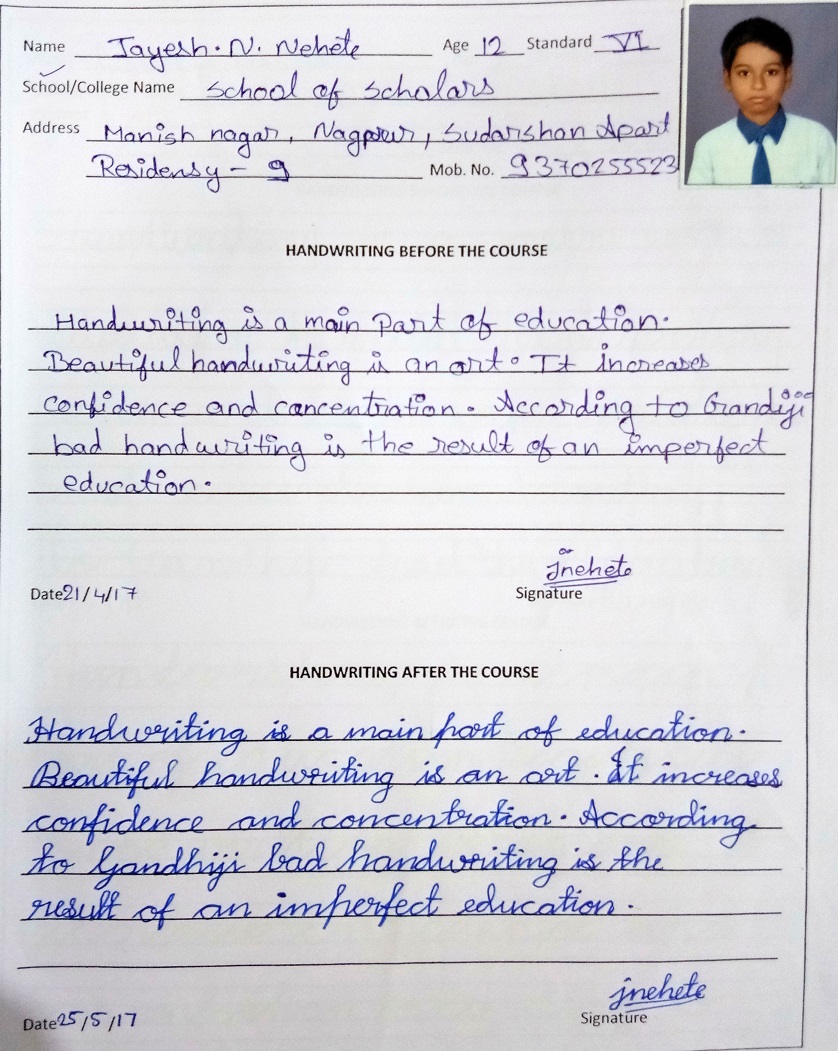 Name Jayesh. N. Nehete Age 12 Standard VI
School/College Name School of Scholars
Address Manish nagar, Nagpur, Sudarshan Apart
Residensy - 9 Mob. No. 9370255523
HANDWRITING BEFORE THE COURSE
Handwriting is a main part of education.
Beautiful handwriting is an art. It increases
confidence and concentration. According to Grandiji
bad handwriting is the result of an imperfect
education.
Jnehete
Date 21/4/17 Signature
HANDWRITING AFTER THE COURSE
Handwriting is a main part of education.
Beautiful handwriting is an art. It increases
confidence and concentration. According
to Gandhiji bad handwriting is the
result of an imperfect education.
jnehete
Date 25/5/17 Signature